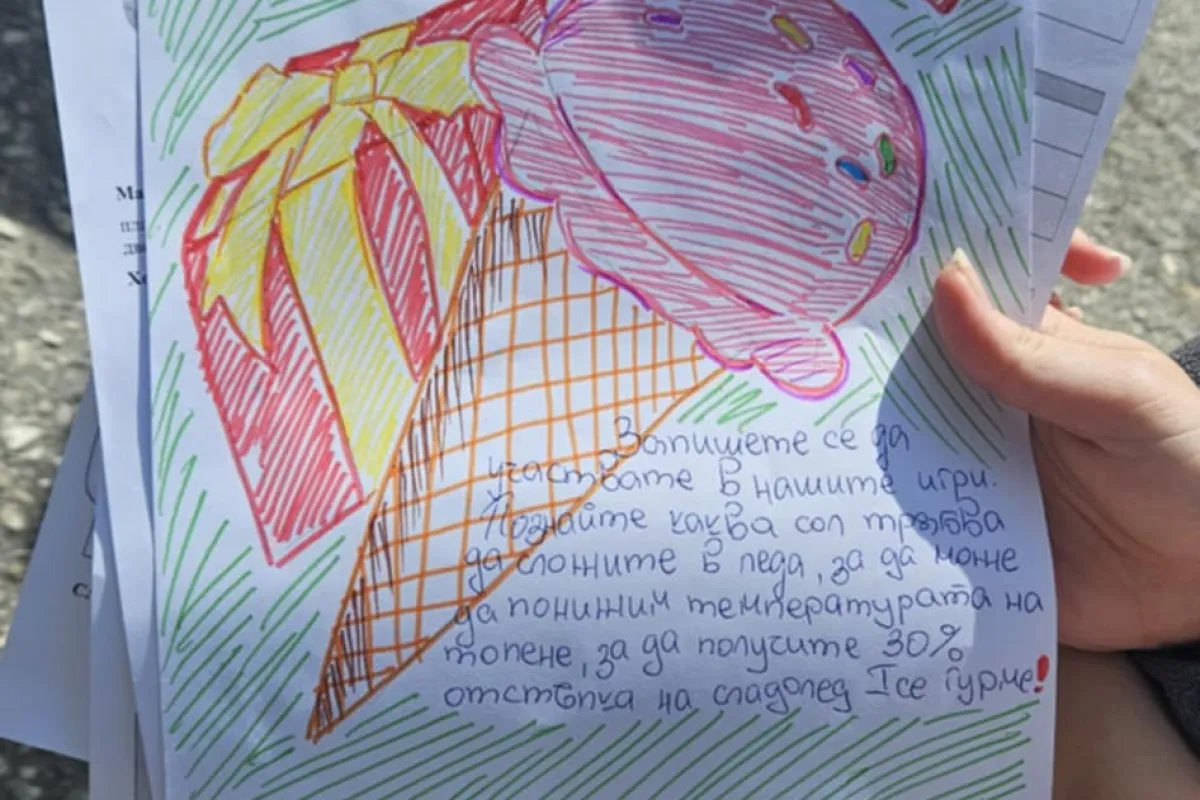 Ма
Запишете се да
участвате в нашите игри.
Познайте каква сол трябва
да сложите в леда, за да може
да понижим температурата на
топене, за да получите 30%
отстъпка на сладолед Ice Гурме!